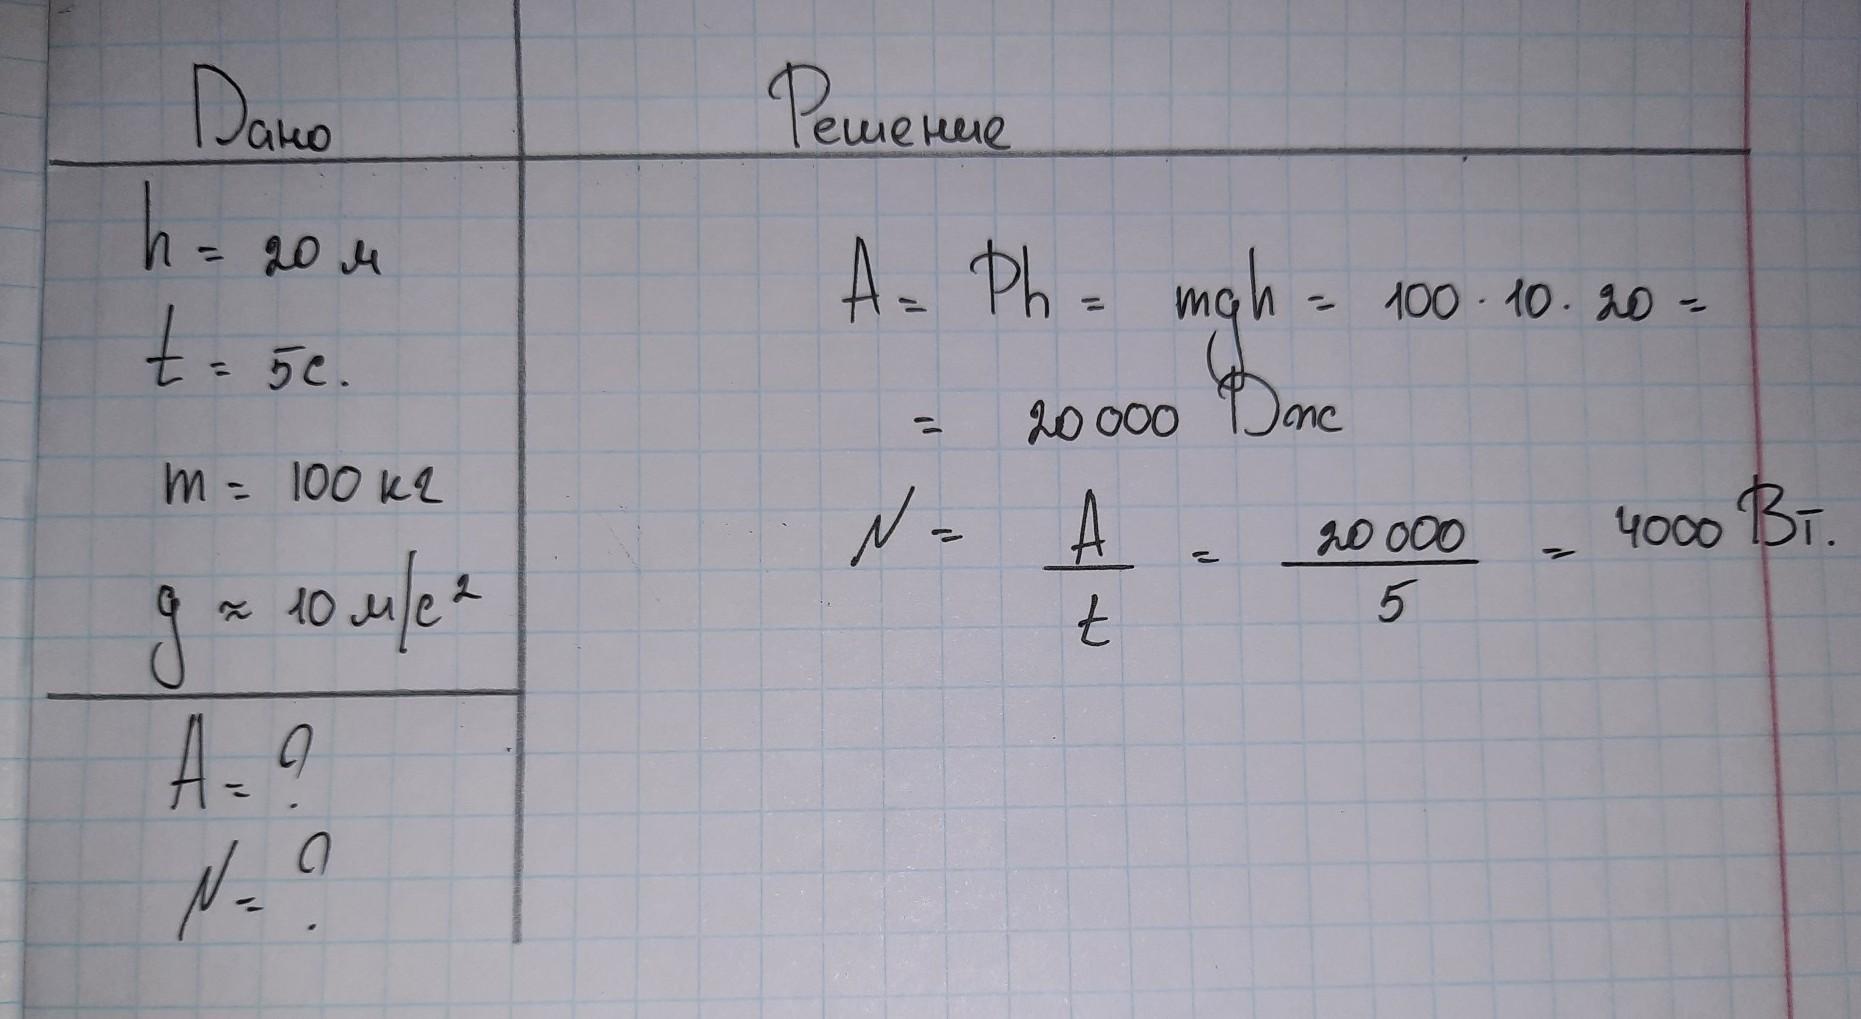 Дано
Решение
h = 20 м
t = 5с.
m = 100 кг
g ≈ 10 м/с²
A = ?
N = ?
A = Ph = mgh = 100 · 10 · 20 =
= 20 000 Дж
N = A/t = 20 000/5 = 4000 Вт.